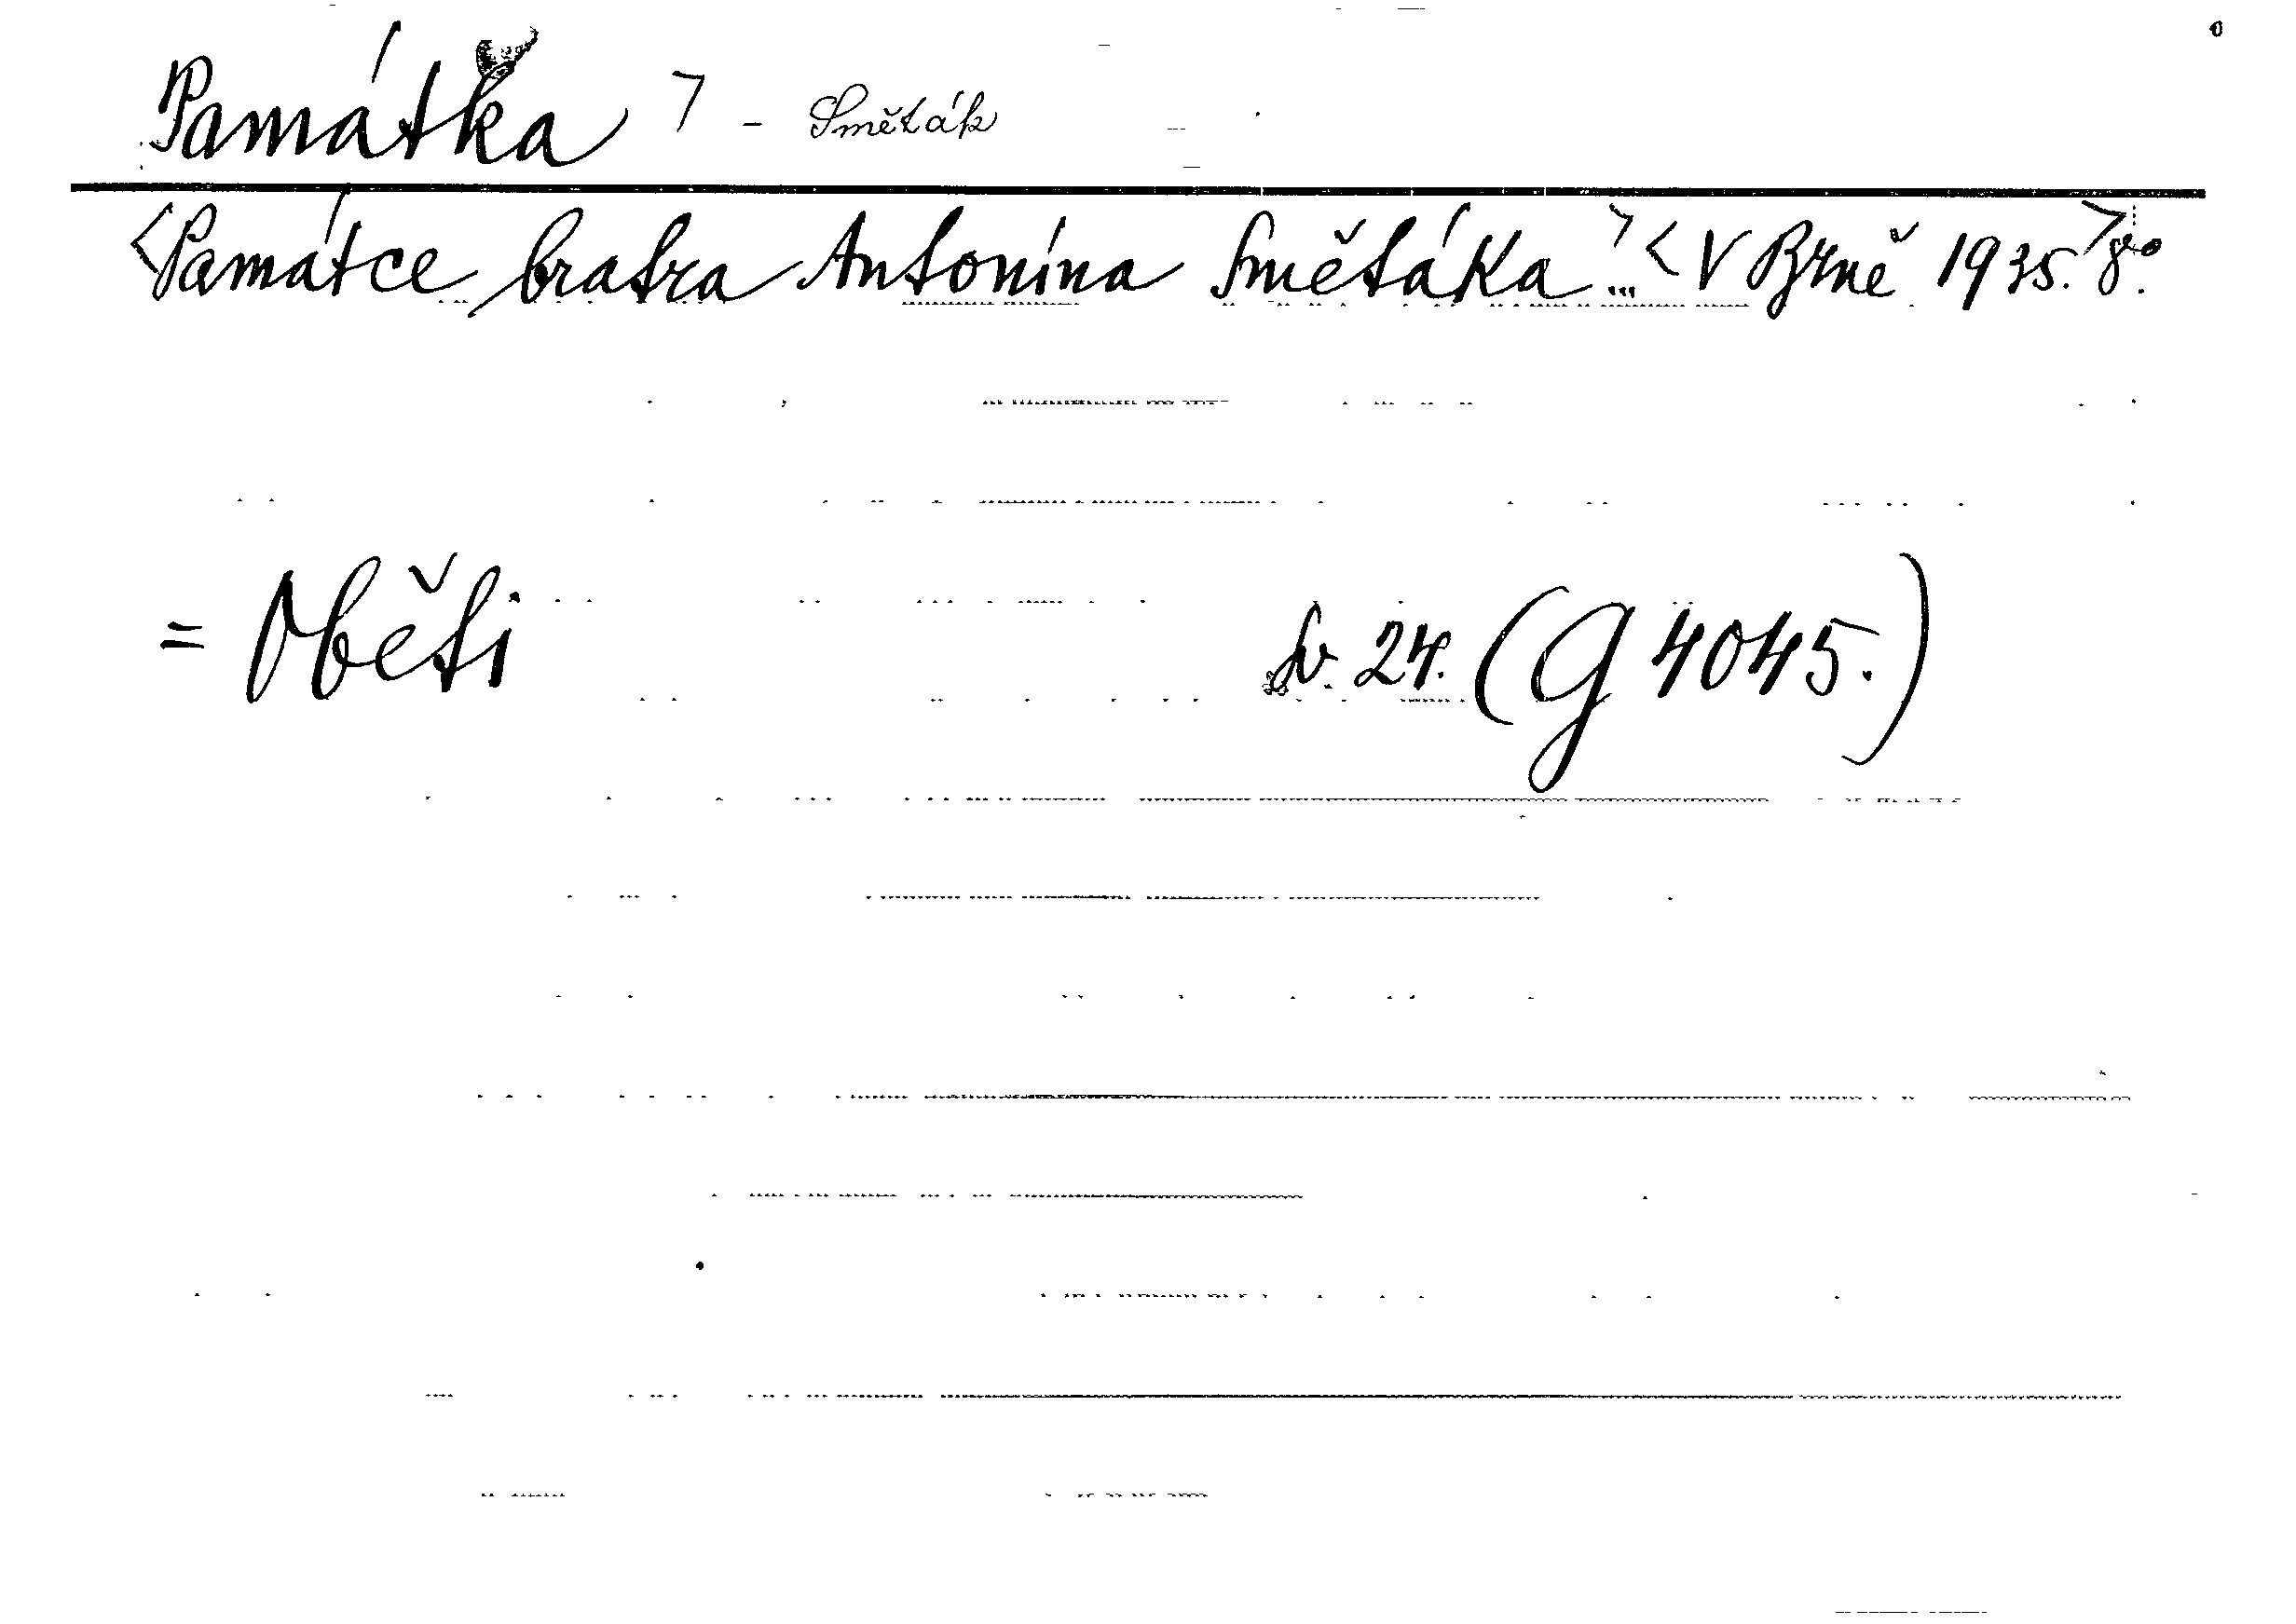 Památka > - Směták
<Památce bratra Antonína Smětáka...> <V Brně 1935.> 8°.
= Oběti sv. 24. (G 4045.)